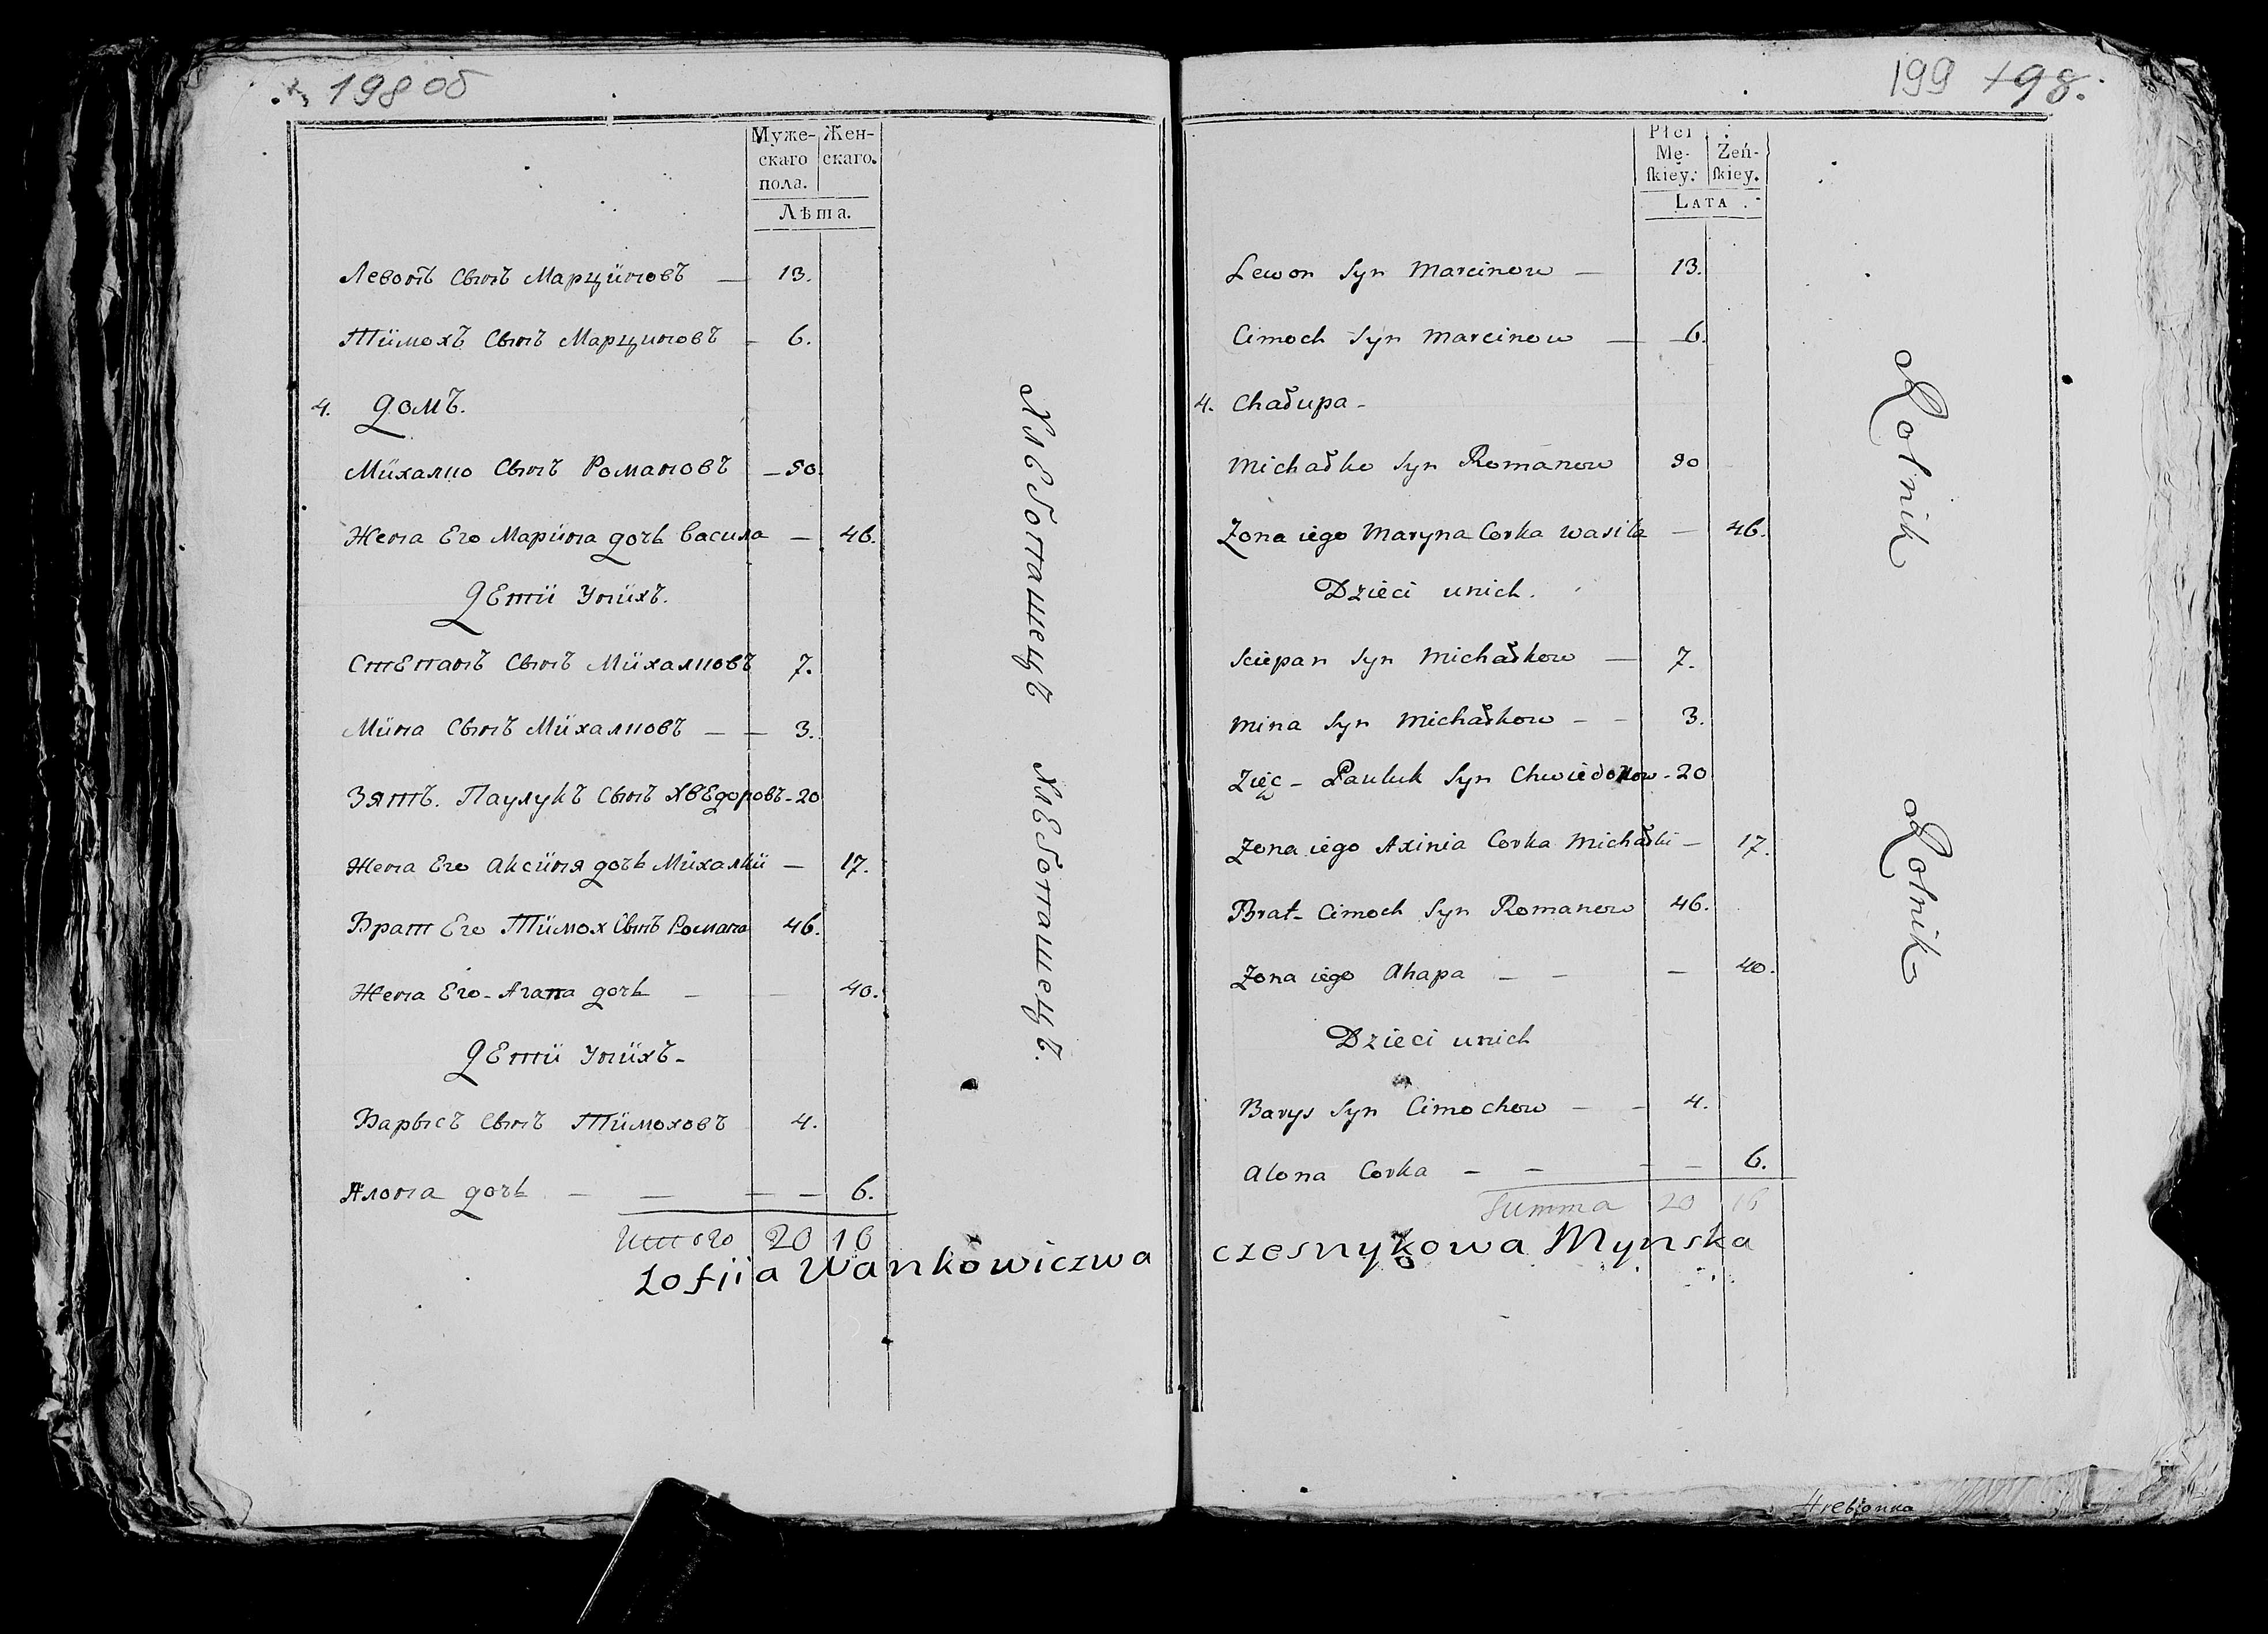 198 об
Муже- Жен-
скаго скаго.
пола.
Лѣта.
Левонъ Сынъ Марцїновъ — 13.
Тїмохъ Сынъ Марциновъ — 6.
4. Домъ.
Мїхалко Сынъ Романовъ — 50.
Жена Его Марїна дочь Васила — 46.
ДЕтїи Унїхъ.
СтЕпанъ Сынъ Мїхалковъ 7.
Мїна Сынъ Мїхалковъ — — 3.
Зять. Паулукъ Сынъ ХвЕдоровъ - 20
Жена Его Аксїня дочь Мїхалкї — 17.
Брат Его Тїмох Сынъ Романа 46.
Жена Его - Агапа дочь — — 40.
ДЕтїи Унїхъ -
Барысъ Сынъ Тїмоховъ 4.
Алона дочь — — — — 6.
Итого 20 16
ХлЕбопашецъ
ХлЕбопашецъ.
Zofiia Wankowiczwa
199 198.
Płci
Mę- Żeń-
skiey. skiey.
LATA
Lewon Syn Marcinow — 13.
Cimoch Syn Marcinow — 6.
4. Chałupa -
Michałko Syn Romanow 50
Zona iego Maryna Corka Wasila — 46.
Dzieci unich.
Sciepan Syn Michałkow — 7.
Mina Syn Michałkow — — 3.
Zięc - Pauluk Syn Chwiedorow - 20
Zona iego Axinia Corka Michałki — 17.
Brat - Cimoch Syn Romanow 46.
Zona iego Ahapa — — — 40.
Dzieci unich
Barys Syn Cimochow — — 4.
Alona Corka — — — — 6.
Summa 20 16
czesnykowa Mynska
Rolnik
Rolnik
Hrebionka